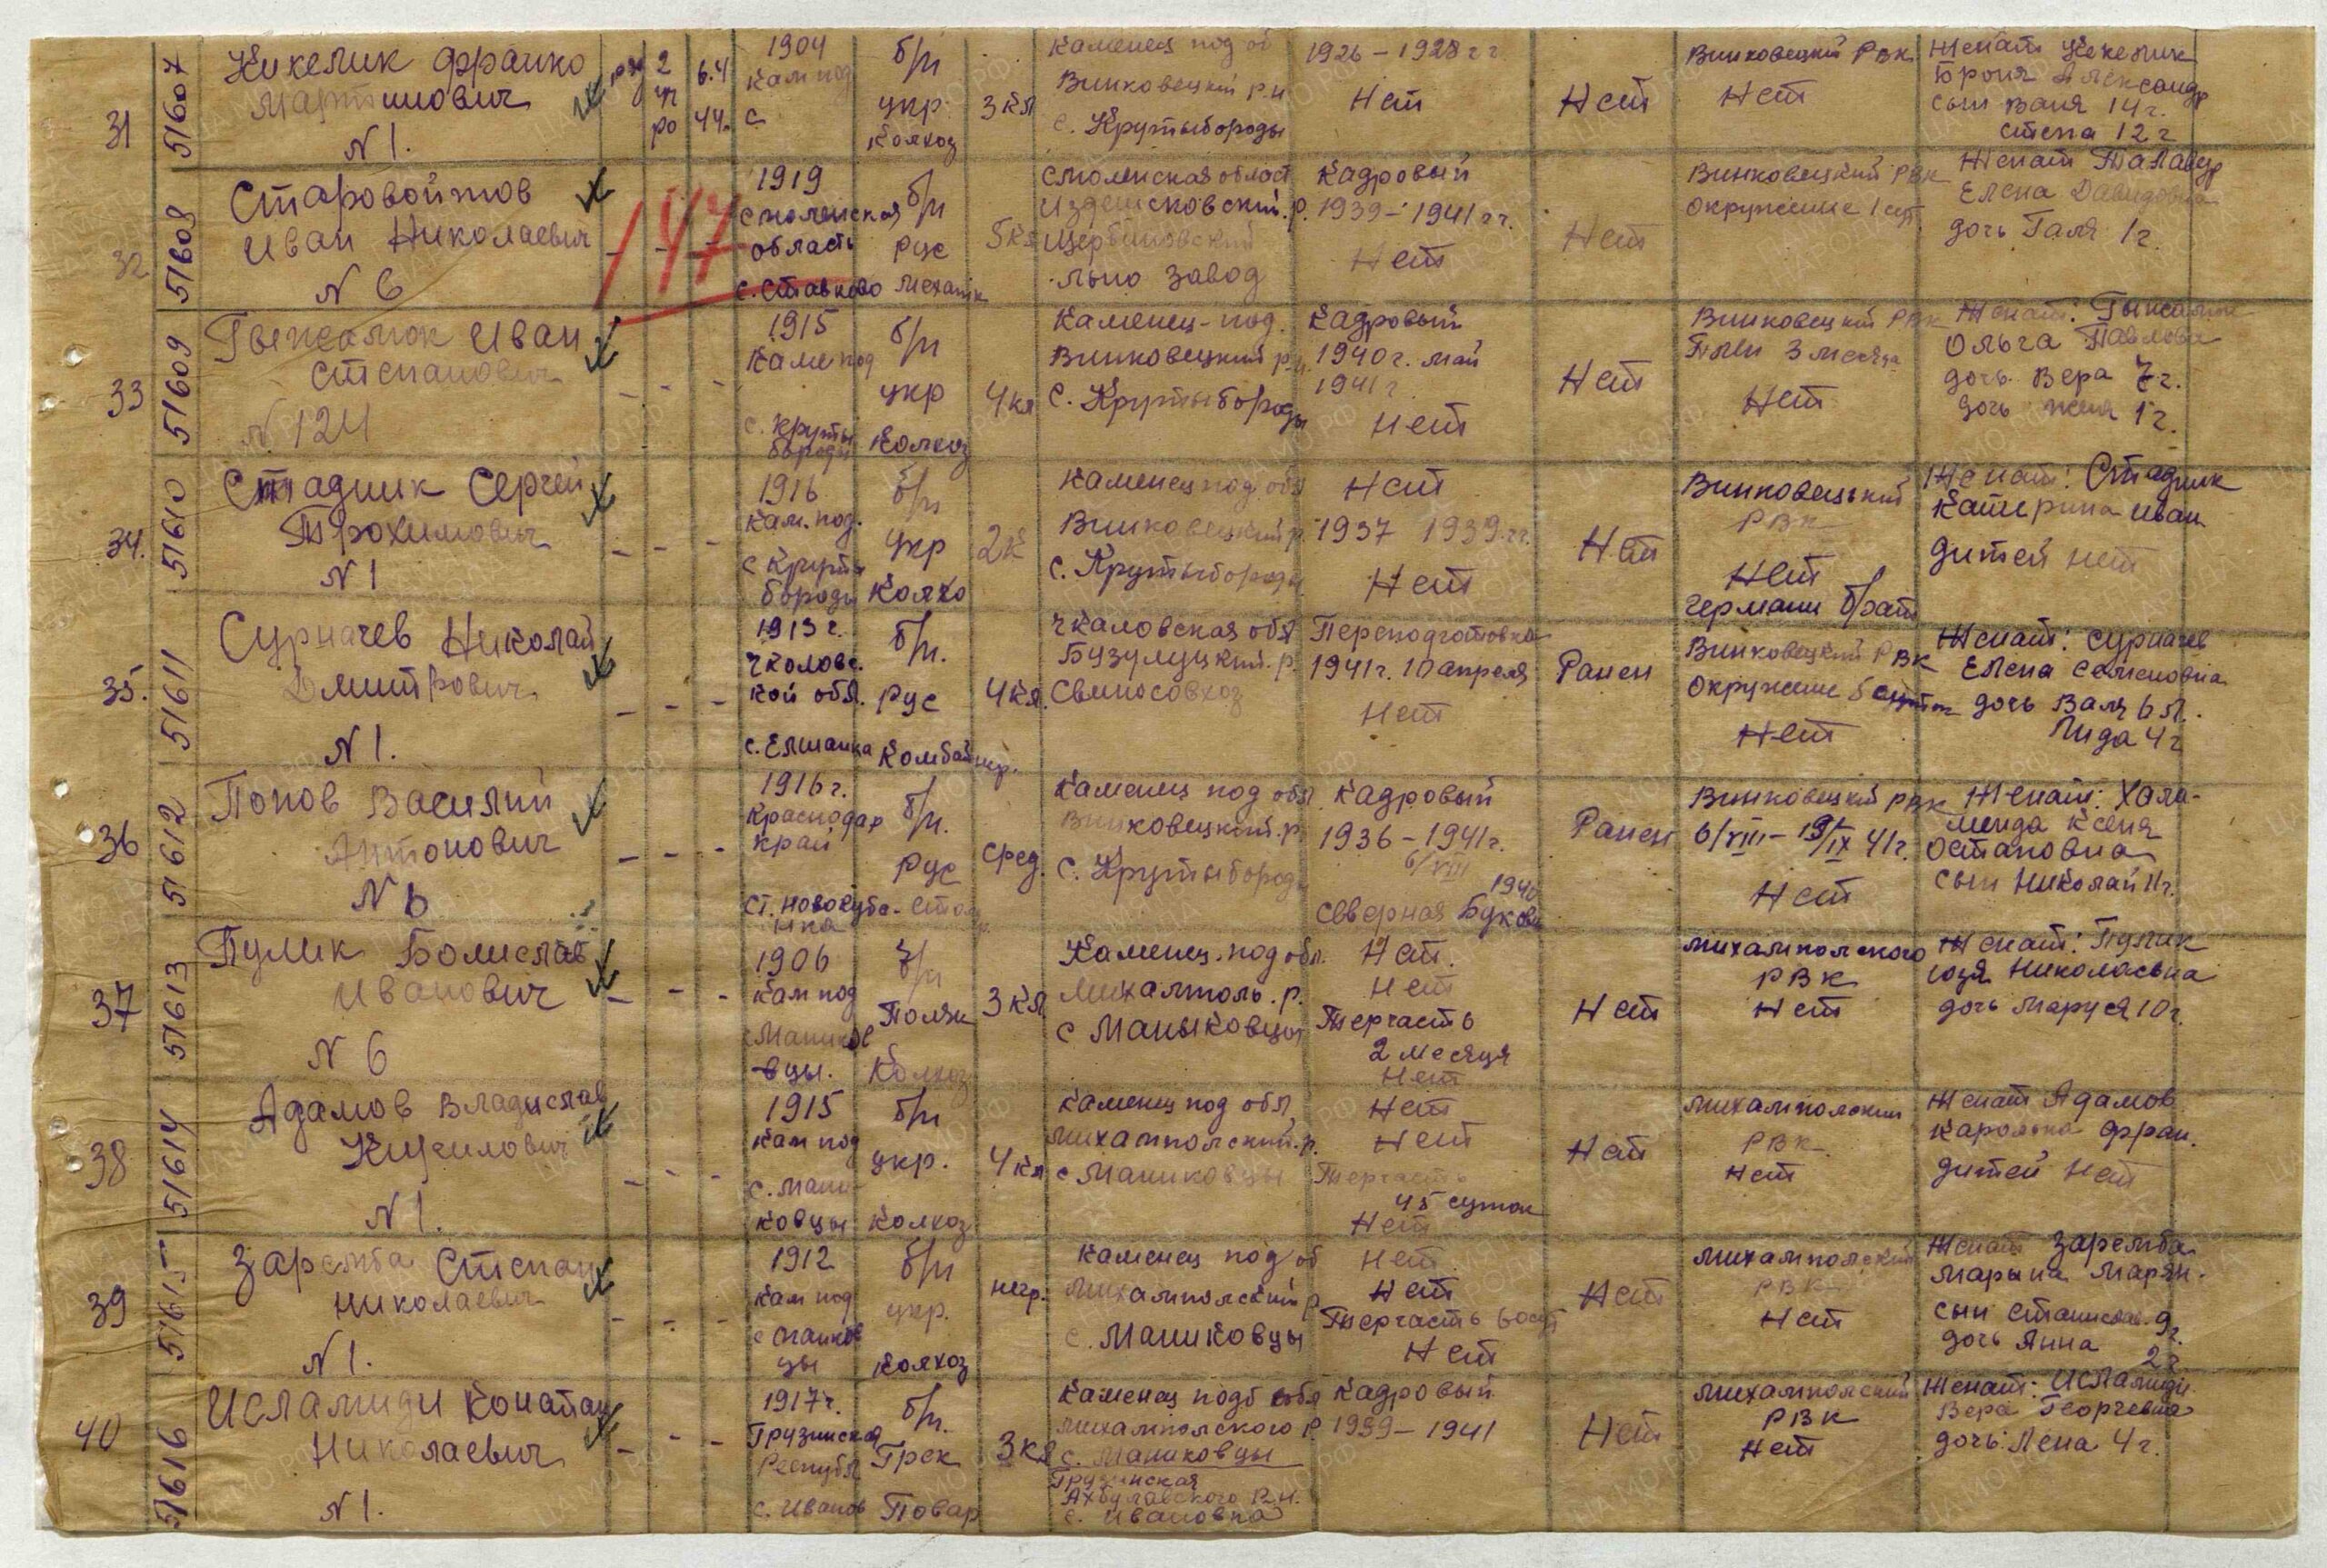 31
51607
Кикелик Франко
Мартинович
N 1.
ряд
2
6.4
44.
1904
Кам под
с
б/п
укр.
Колхоз
3 кл
Каменец под об
Винковецкий р.н
с. Крутыбороды
1926 – 1928 г г
Нет
Нет
Винковецкий РВК
Нет
Женат Кекелик
Броня Александр
сын Ваня 14 г.
Степа 12 г
32
51608
Старовойтов
Иван Николаевич
N 6
147
1919
Смоленская
область
с. Ставково
б/п
рус
механик
5 кл
Смоленская област
Издешковский. р.
Щербиновский
льно завод
Кадровый
1939 – 1941 г г.
Нет
Нет
Винковецкий РВК
окружение 1 сут.
Женат Талавер
Елена Давидовна
дочь Галя 1 г.
33
51609
Гыжалюк Иван
Степанович
N 124
1915
Каме под
с. Круты
бороды
б/п
укр
Колхоз
4 кл
Каменец – под.
Винковецкий р.н.
с. Крутыбороды
Кадровый
1940 г. май
1941 г
Нет
Нет
Винковецкий РВК
Плен 3 месяца
Нет
Женат:
Ольга Павлова
дочь Вера 7 г.
дочь Женя 1 г.
34.
51610
Стадник Сергей
Трохимович
N 1
1916
Кам. под.
с Круты
бороды
б/п
укр
Колхо
2 к
Каменец под обл
Винковецкий р.
с. Крутыбороды
Нет
1937 1939. г г.
Нет
Нет
Винковецький
РВК
Нет
Германи брат
Женат: Стадник
Катерина Иван
дитей нет
35.
51611
Сурначев Николай
Дмитрович
N 1.
1913 г.
Чколовс.
кой обл.
с. Елшанка
б/п.
рус
Комбайнер.
4 кл.
Чкаловская обл
Бузулуцкий. р.
Свиносовхоз
Переподготовка
1941 г. 10 апреля
Нет
Ранен
Винковецкий РВК
окружение 5 суток
Нет
Женат: Сурначев
Елена Семеновна
дочь Валя 6 л.
Лида 4 г
36
51612
Попов Василий
Антонович
N 6
1916 г.
Краснодар
край
ст. Новокуба-
нка
б/п.
рус
сред.
Каменец под обл
Винковецкий. р.
с. Крутыбороды
Кадровый
1936 – 1941 г.
6/VIII
1940
северная Букови
Ранен
Винковецкий РВК
6/VIII – 19/IX 41 г.
Нет
Женат: Хала-
менда Ксеня
Остаповна
сын Николай 11 г.
37
51613
Пулик Болислав
Иванович
N 6
1906
Кам под
с Манико
вцы.
б/п
Поляк
Колхоз
3 кл
Каменец. под обл.
Михамполь. р.
с Маныковцы
Нет.
Нет
Терчасть
2 месяця
Нет
Нет
Михампольского
РВК
Нет
Женат: Пулик
Юзя Николаевна
дочь Маруся 10 г.
38
51614
Адамов Владислав
N 1.
1915
Кам под
с. Мани-
ковцы
б/п
укр.
Колхоз
4 кл
Каменец под обл
Михампольский. р.
с Маниковцы
Нет
Нет
Терчасть
45 суток
Нет
Нет
Михампольский
РВК
Нет
Женат Адамов
Каролька Фран.
дитей нет
39
51615
Заремба Степан
Николаевич
N 1.
1912
Кам под
с Маников
цы
б/п
укр.
Колхоз
негр.
Каменец под об
Михампольский р
с. Маниковцы
Нет
Нет
Терчасть 60 сут
Нет
Нет
Михампольский
РВК
Нет
Женат Заремба
Марына Марян.
сын Станислав. 9 г.
дочь Анна 2 г
40
51616
Исламиди Конатан
Николаевич
N 1.
1917 г.
Грузинская
Республ
с. Иванов
б/п.
Грек
Повар
3 кл
Каменец подб обл
Михампольского р
с. Маниковцы
Грузинская
Ахбулавского р.н.
с. Ивановка
Кадровый
1939 – 1941
Нет
Михампольский
РВК
Нет
Женат: Исламиди.
Вера Георгевна
дочь Лена 4 г.